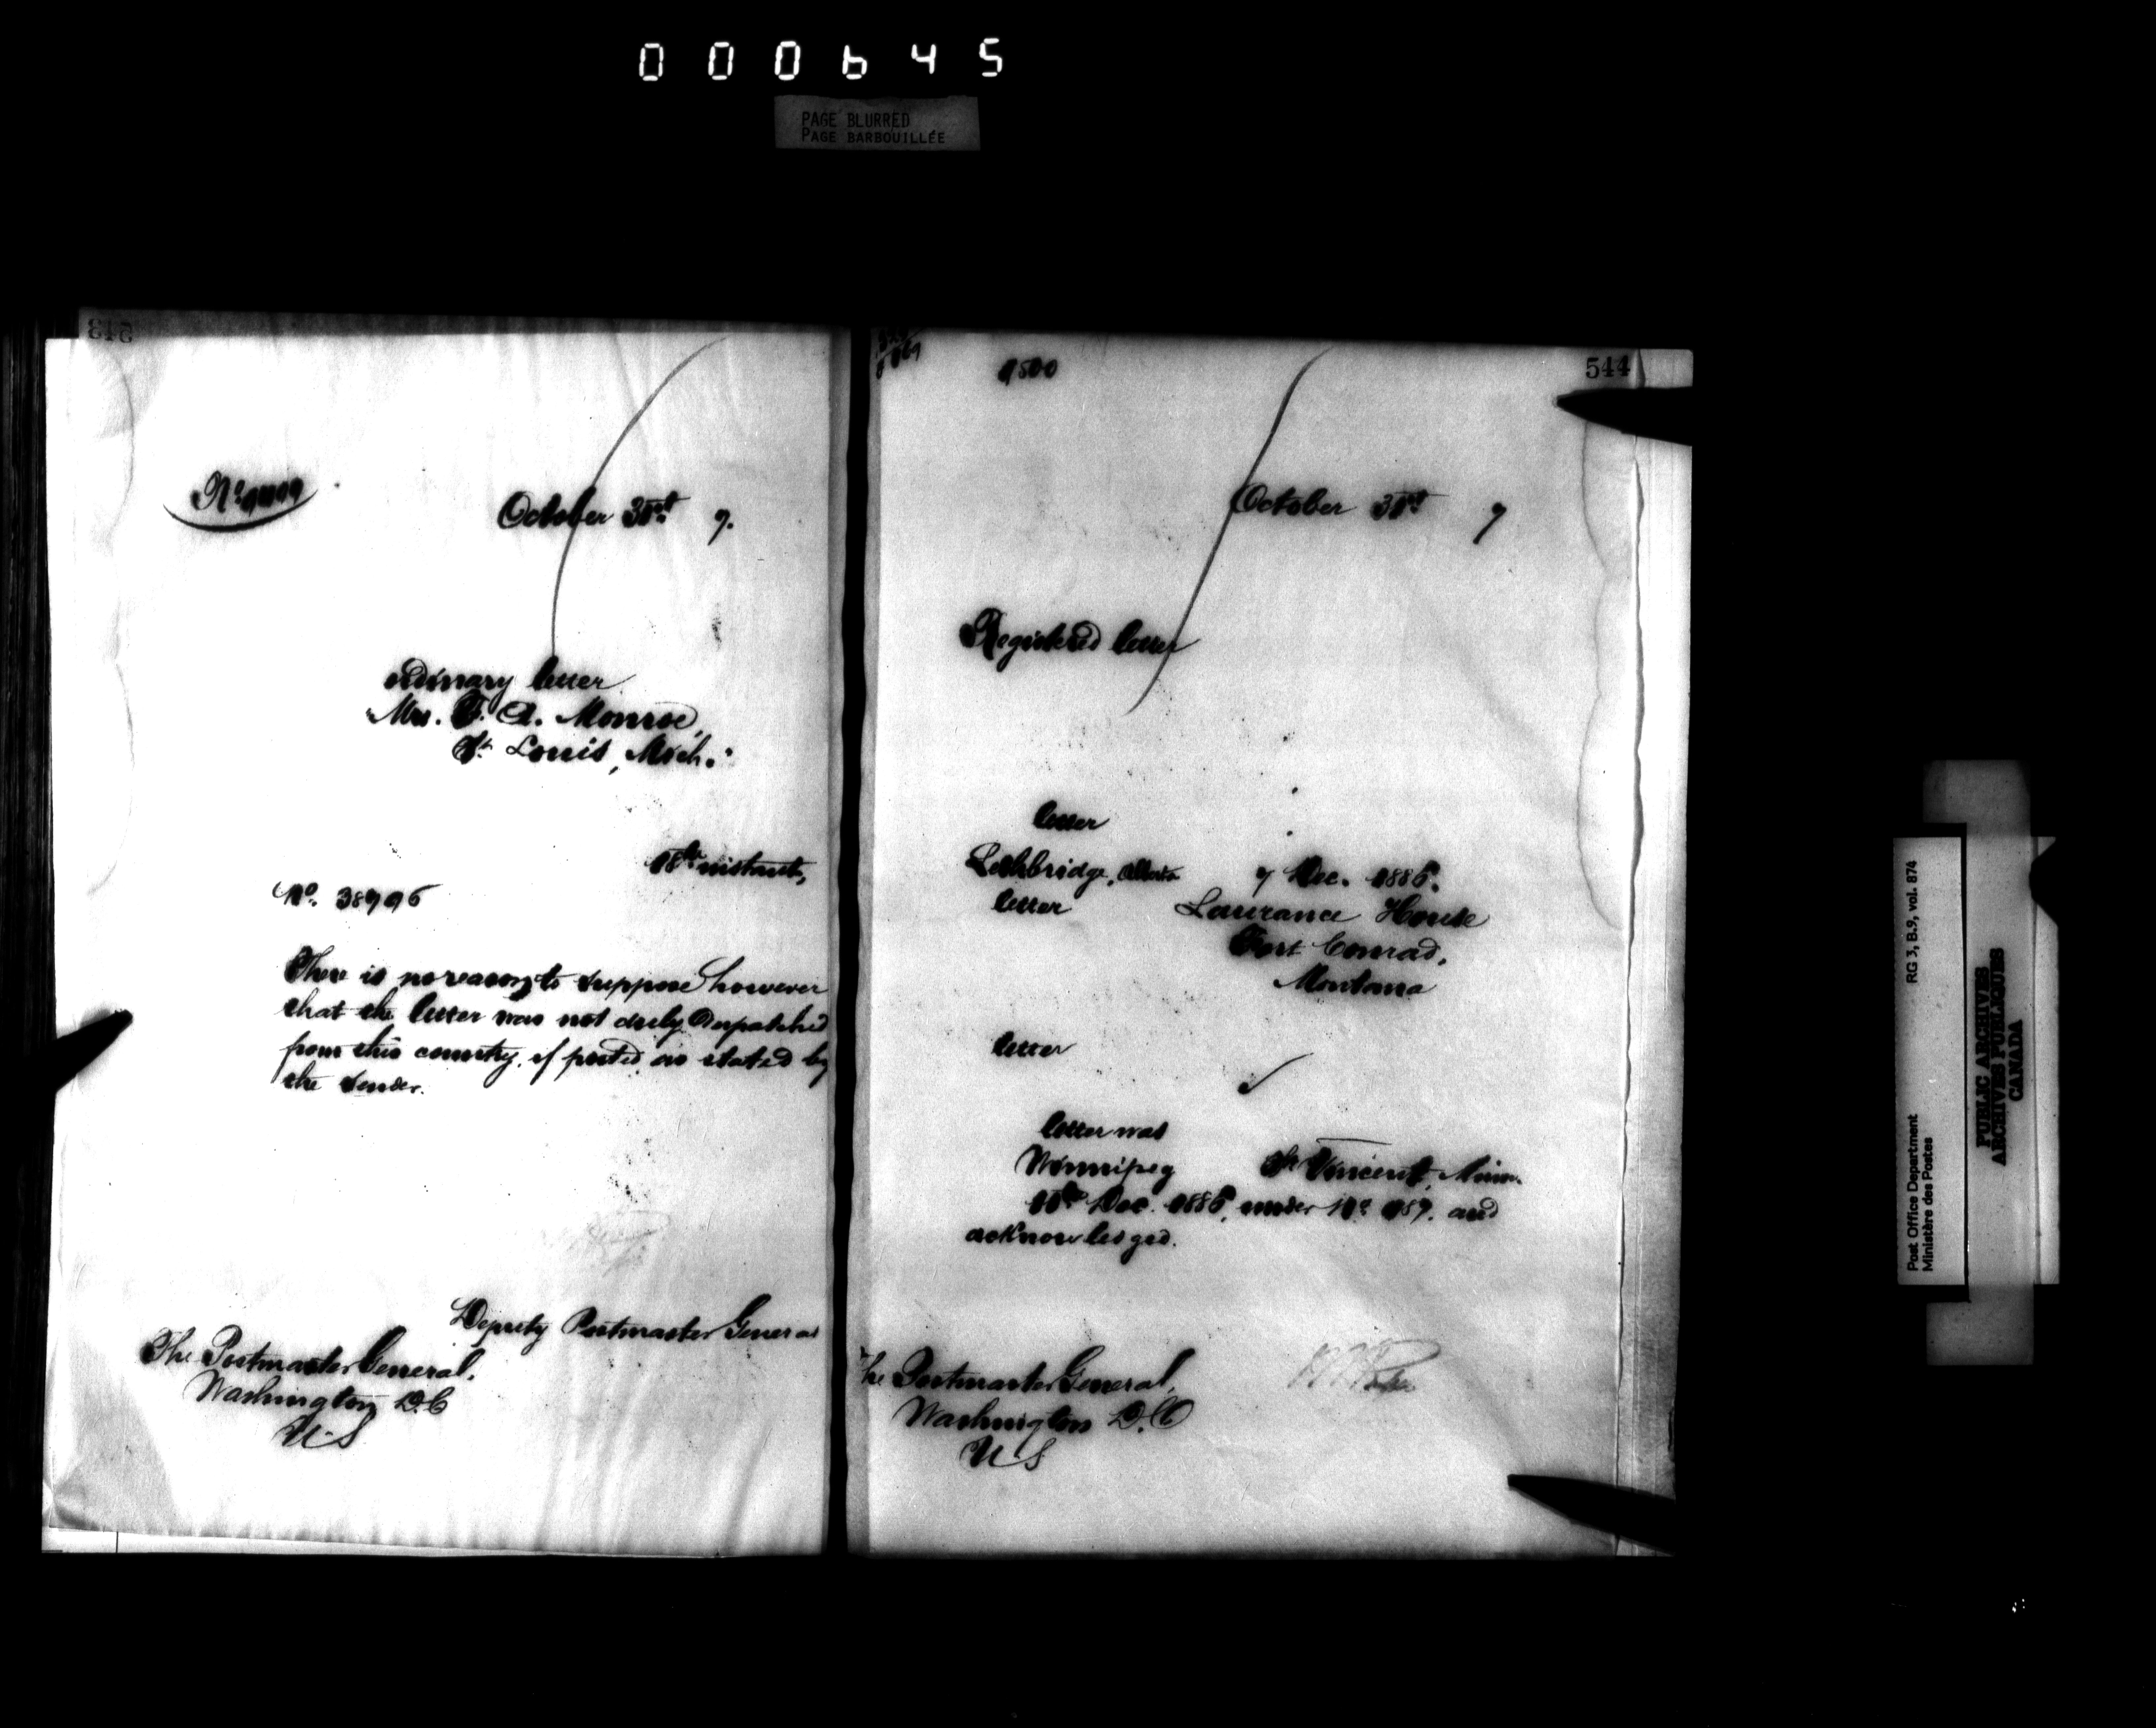 000645
PAGE BLURRED
PAGE BARBOUILLÉE
543
October 31st 7.
ordinary letter
"Mrs. F. A. Monroe,
St. Louis, Mich."
18th instant,
No. 38796
There is no reason to suppose however
that the letter was not duly despatched
from this country, if posted as stated by
the sender.
Deputy Postmaster General
The Postmaster General,
Washington D.C
U.S
1500
544
October 31st 7
Registered letter
letter
Lethbridge, Alberta 7 Dec. 1886.
letter Laurance House
Fort Conrad,
Montana
letter
letter was
Winnipeg St Vincent, Minn.
11th Dec. 1886, under No. 157. and
acknowledged.
The Postmaster General,
Washington D.C
U S
Post Office Department RG 3, B.9, vol. 874
Ministère des Postes
PUBLIC ARCHIVES
ARCHIVES PUBLIQUES
CANADA